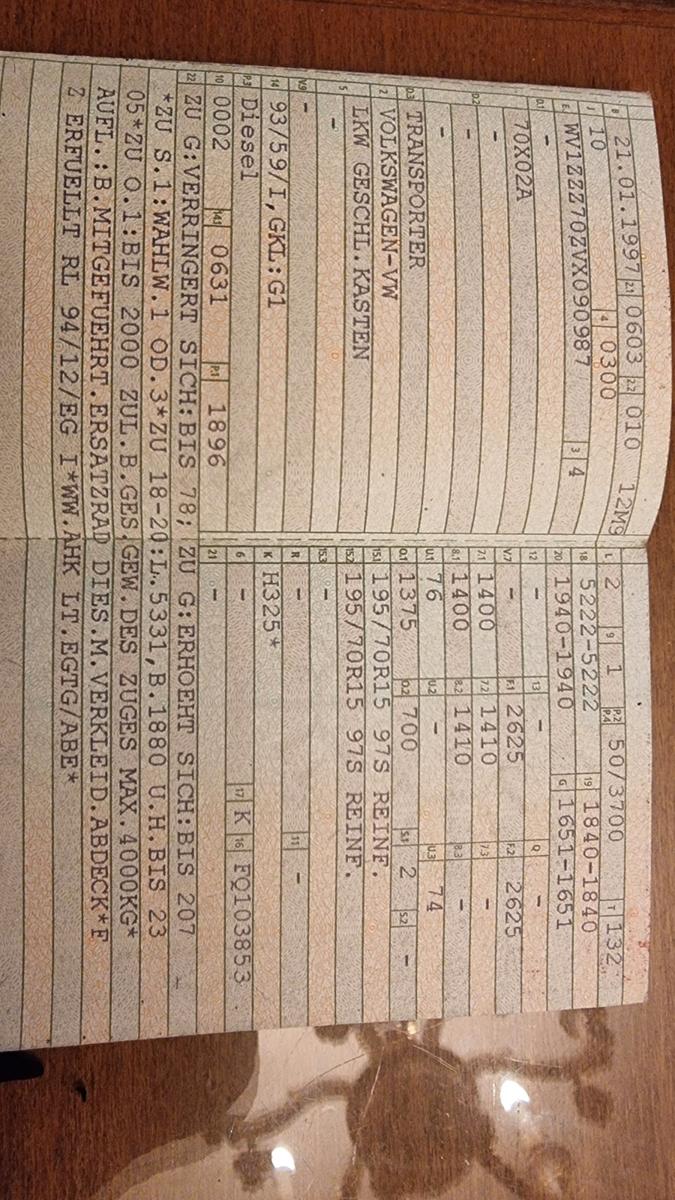 B 21.01.1997 2.1 0603 2.2 010 12M9 L 2 9 1 P.2 P.4 50/3700 T 132
J 10 4 0300 18 5222-5222 19 1840-1840
E WV1ZZZ70ZVX090987 3 4 20 1940-1940 G 1651-1651
D.1 - 12 - 13 - Q -
70X02A V.7 - F.1 2625 F.2 2625
D.2 - 7.1 1400 7.2 1410 7.3 -
- 8.1 1400 8.2 1410 8.3 -
- U.1 76 U.2 - U.3 74
D.3 TRANSPORTER O.1 1375 O.2 700 S.1 2 S.2 -
2 VOLKSWAGEN-VW 15.1 195/70R15 97S REINF.
5 LKW GESCHL.KASTEN 15.2 195/70R15 97S REINF.
- 15.3 -
V.9 - R - 11 -
14 93/59/I,GKL:G1 K H325*
P.3 Diesel 6 - 17 K 16 FQ103853
10 0002 14.1 0631 P.1 1896 21 -
22 ZU G:VERRINGERT SICH:BIS 78; ZU G:ERHOEHT SICH:BIS 207
*ZU S.1:WAHLW.1 OD.3*ZU 18-20:L.5331,B.1880 U.H.BIS 23
05*ZU O.1:BIS 2000 ZUL.B.GES.GEW.DES ZUGES MAX.4000KG*
AUFL.:B.MITGEFUEHRT.ERSATZRAD DIES.M.VERKLEID.ABDECK*F
Z ERFUELLT RL 94/12/EG I*WW.AHK LT.EGTG/ABE*